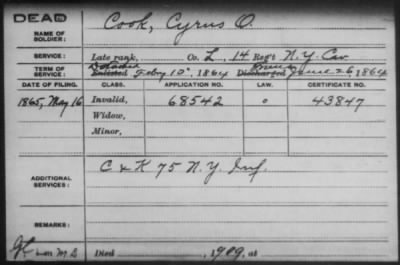 DEAD
NAME OF SOLDIER:
Cook, Cyrus O.
SERVICE:
Late rank, Co. L, 14 Reg't N.Y. Cav.
TERM OF SERVICE:
Enlisted Feby 10", 1864 Discharged June 26, 1864
DATE OF FILING. CLASS. APPLICATION NO. LAW. CERTIFICATE NO.
1865, May 16 Invalid, 68542 o 43847
Widow,
Minor,
ADDITIONAL SERVICES:
C & K 75 N.Y. Inf.
REMARKS:
Died , 1909, at